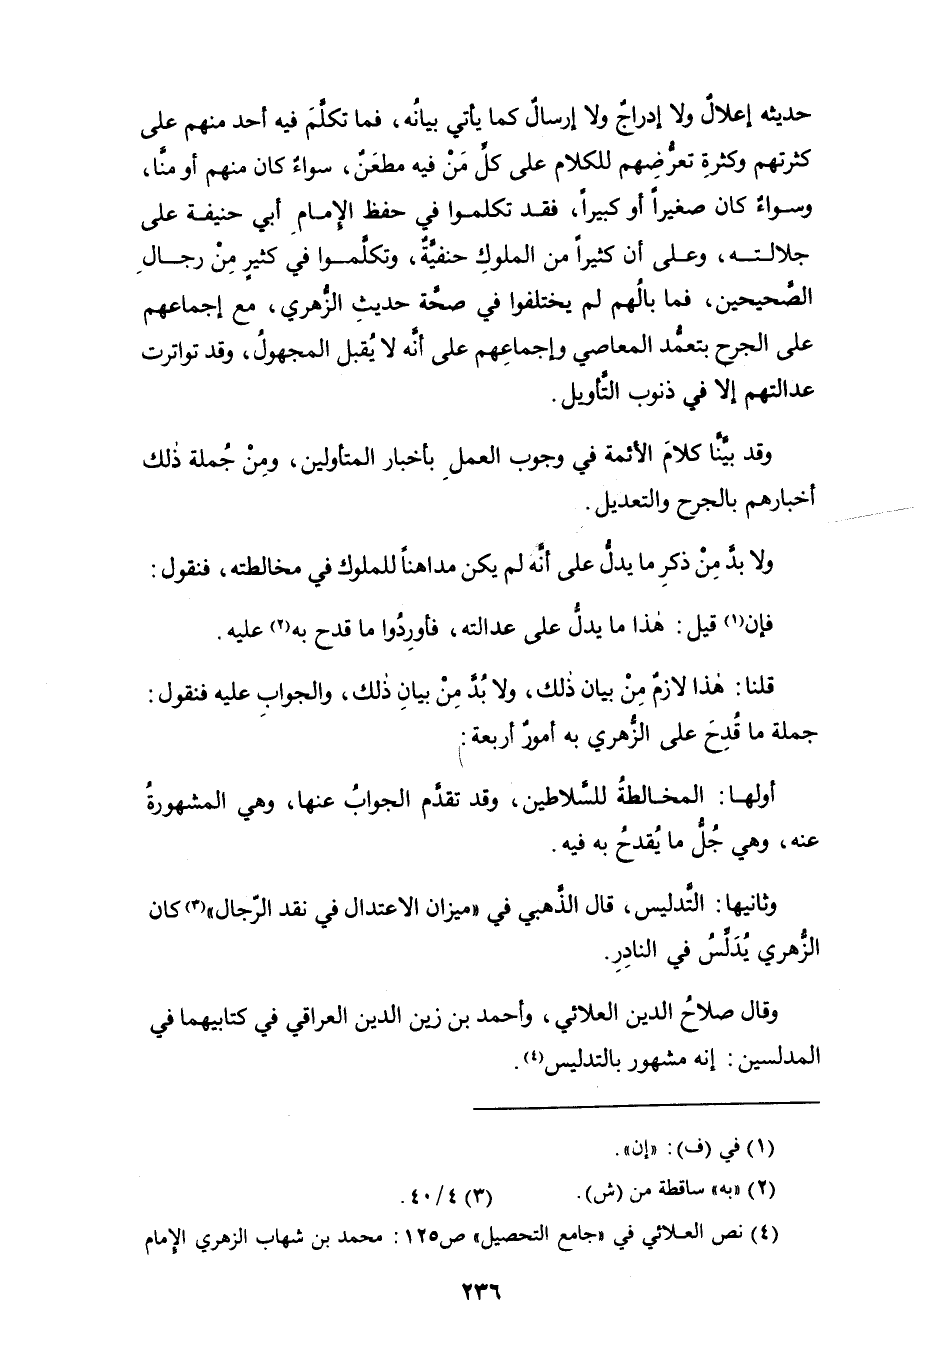 حديثه إعلالٌ ولا إدراجٌ ولا إرسالٌ كما يأتي بيانُه، فما تكلَّمَ فيه أحد منهم على
كثرتهم وكثرةِ تعرُّضِهم للكلام على كلِّ مَنْ فيه مطعَنٌ، سواءٌ كان منهم أو منَّا،
وسواءٌ كان صغيراً أو كبيراً، فقد تكلموا في حفظ الإمامِ أبي حنيفة على
جلالته، وعلى أن كثيراً من الملوكِ حنفيَّةٌ، وتكلَّموا في كثيرٍ مِنْ رجالِ
الصَّحيحين، فما بالُهم لم يختلفوا في صحَّة حديثِ الزُّهري، مع إجماعهم
على الجرح بتعمُّد المعاصي وإجماعِهم على أنَّه لا يُقبل المجهولُ، وقد تواترت
عدالتهم إلا في ذنوب التَّأويل.
وقد بيَّنَّا كلامَ الأئمة في وجوب العملِ بأخبار المتأولين، ومِنْ جُملة ذٰلك
أخبارهم بالجرح والتعديل.
ولا بدَّ مِنْ ذكرِ ما يدلُّ على أنَّه لم يكن مداهناً للملوك في مخالطته، فنقول:
فإن(١) قيل: هٰذا ما يدلُّ على عدالته، فأورِدُوا ما قدح به(٢) عليه.
قلنا: هٰذا لازمٌ مِنْ بيان ذٰلك، ولا بُدَّ مِنْ بيانِ ذٰلك، والجوابِ عليه فنقول:
جملة ما قُدِحَ على الزُّهري به أمورٌ أربعة:
أولها: المخالطةُ للسَّلاطين، وقد تقدَّم الجوابُ عنها، وهي المشهورةُ
عنه، وهي جُلُّ ما يُقدحُ به فيه.
وثانيها: التَّدليس، قال الذَّهبي في «ميزان الاعتدال في نقد الرّجال»(٣) كان
الزُّهري يُدَلِّسُ في النادِرِ.
وقال صلاحُ الدين العلائي، وأحمد بن زين الدين العراقي في كتابيهما في
المدلسين: إنه مشهور بالتدليس(٤).
(١) في (ف): «إن».
(٢) «به» ساقطة من (ش). (٣) ٤٠/٤.
(٤) نص العلائي في «جامع التحصيل» ص١٢٥: محمد بن شهاب الزهري الإمام
٢٣٦